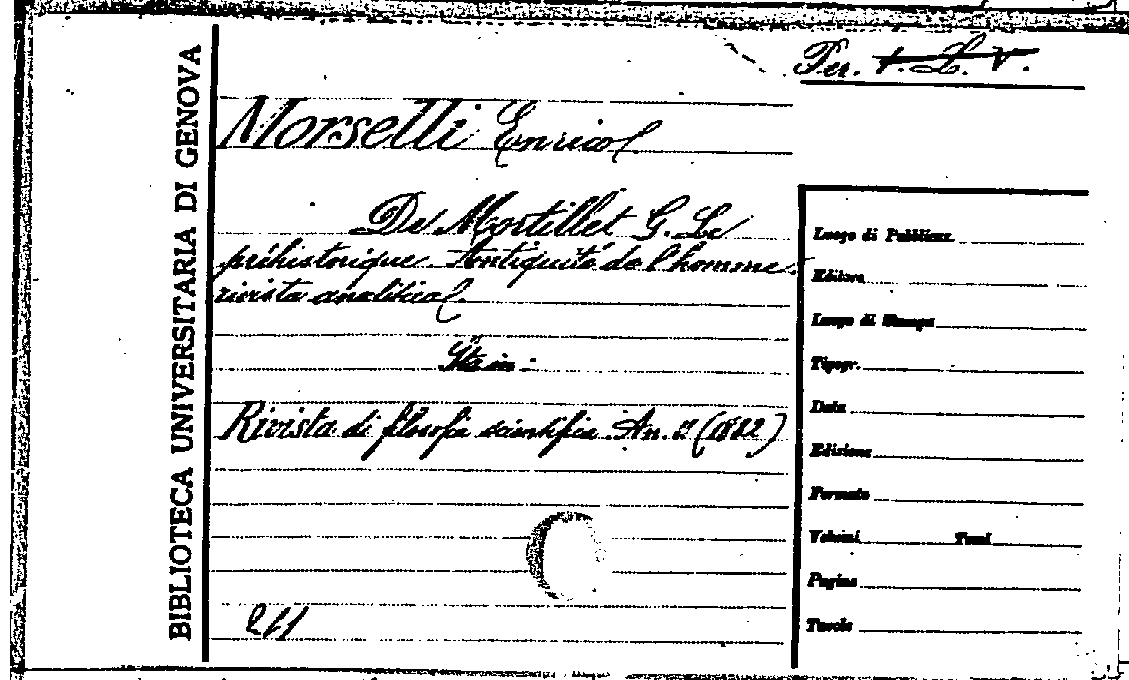 BIBLIOTECA UNIVERSITARIA DI GENOVA
Per. 1. L. V.
Morselli Enrico
De Mortillet G. Le
préhistorique. Antiquité de l'homme.
rivista analitica
Sta in:
Rivista di filosofia scientifica. An. 2 (1882)
211
Luogo di Pubblicaz.
Editore
Luogo di Stampa
Tipogr.
Data
Edizione
Formato
Volumi Tomi
Pagine
Tavole